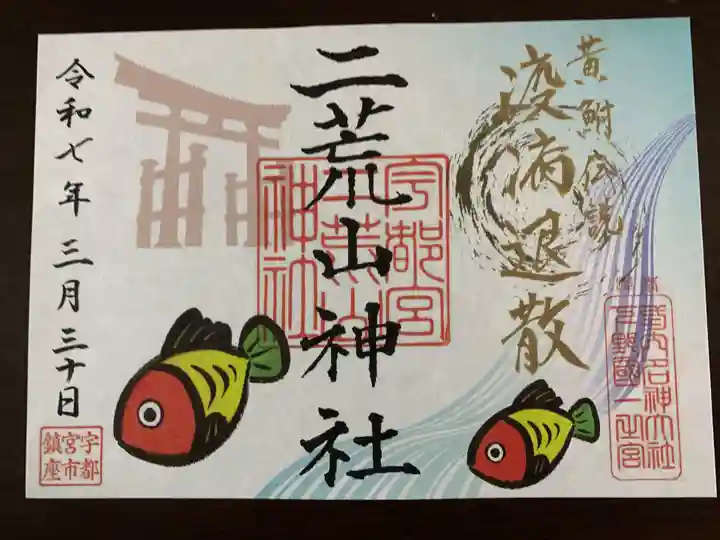 黄鮒伝説
疫病退散
二荒山神社
宇都宮
二荒山
神社
名神大社
下野國一之宮
令和七年 三月三十日
宇都
宮市
鎮座